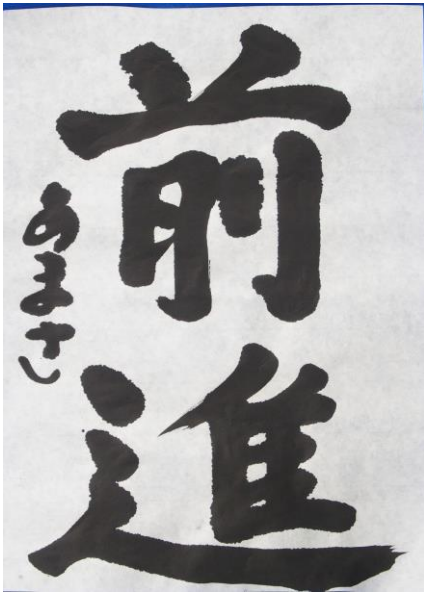 前進
あまさし